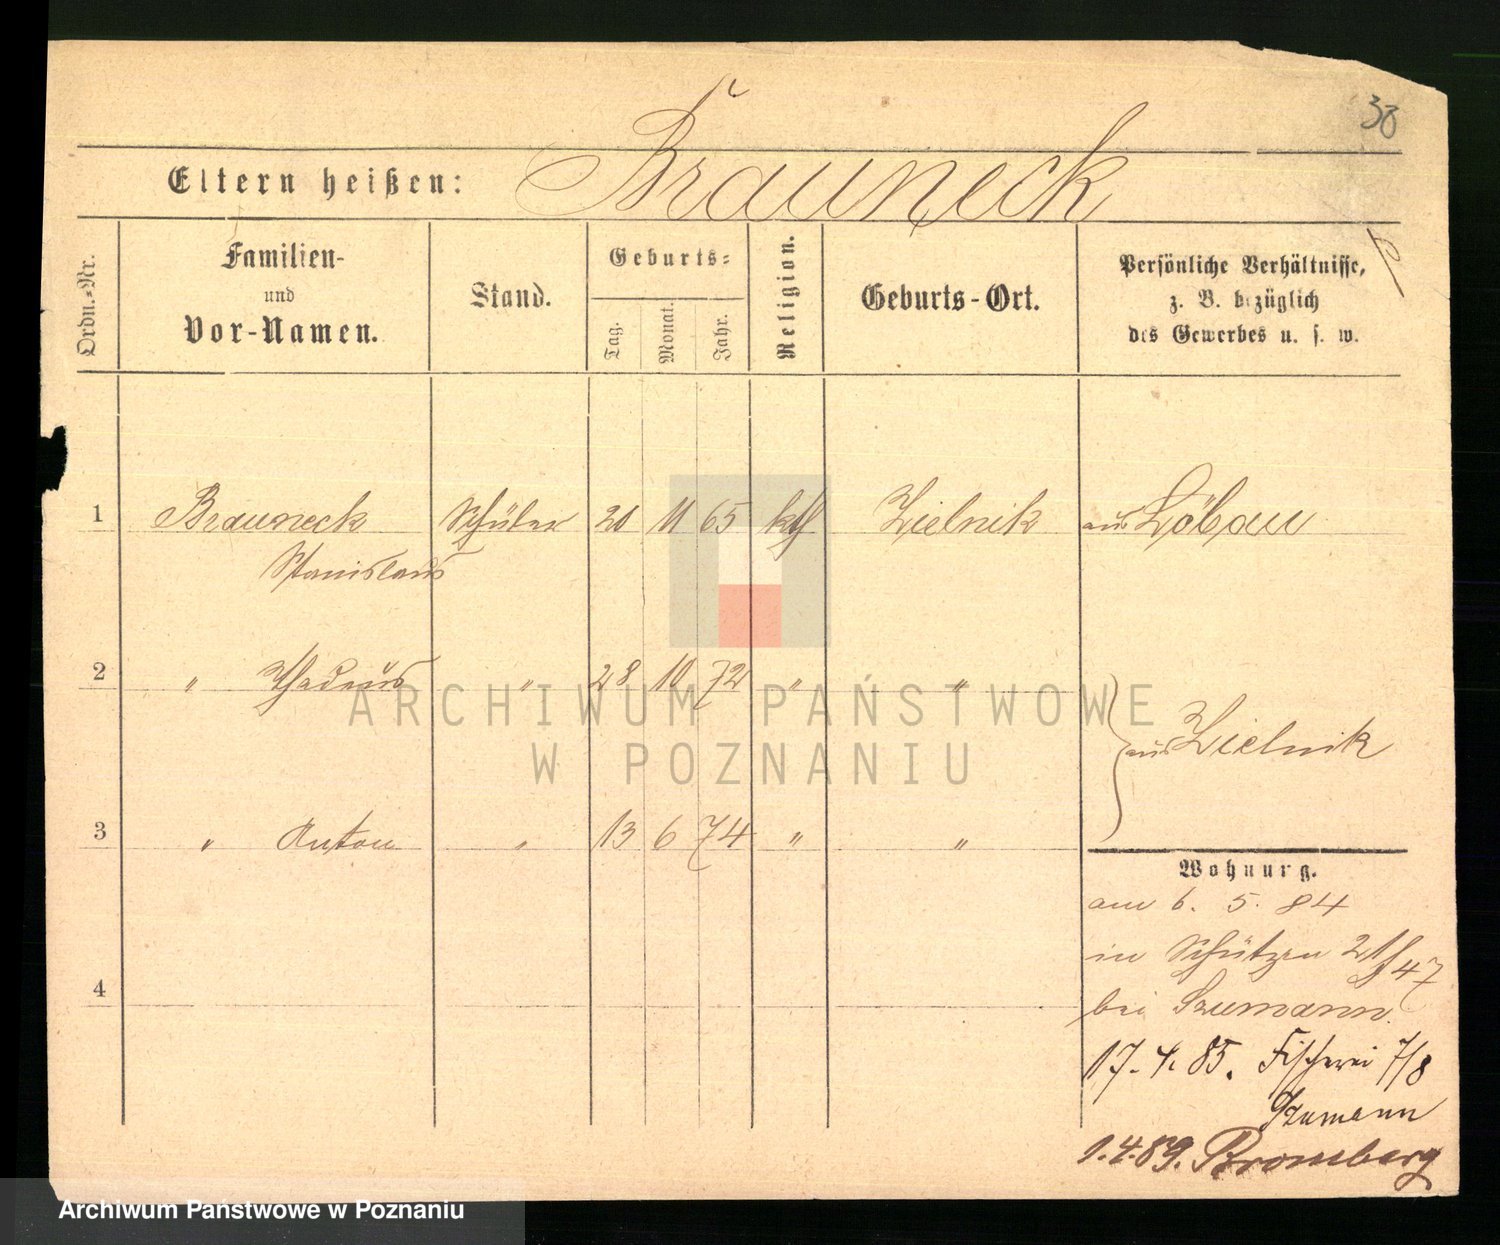 38
Eltern heißen: Brauneck
Ordn.-Nr.
Familien-
und
Vor-Namen.
Stand.
Geburts-
Tag.
Monat.
Jahr.
Religion.
Geburts-Ort.
Persönliche Verhältnisse,
z. B. bezüglich
des Gewerbes u. s. w.
1 Brauneck Schüler 20 11 65 kth Zielnik aus Löbau
Stanislaus
2 " Thadeus " 28 10 72 " "
aus Zielnik
3 " Anton " 13 6 74 " "
Wohnung.
am 6. 5. 84
in Schützen 21/47
bei Szumann.
4
17. 4. 85. Fischerei 7/8
Szumann
1.4.89. Bromberg
ARCHIWUM PAŃSTWOWE
W POZNANIU
Archiwum Państwowe w Poznaniu